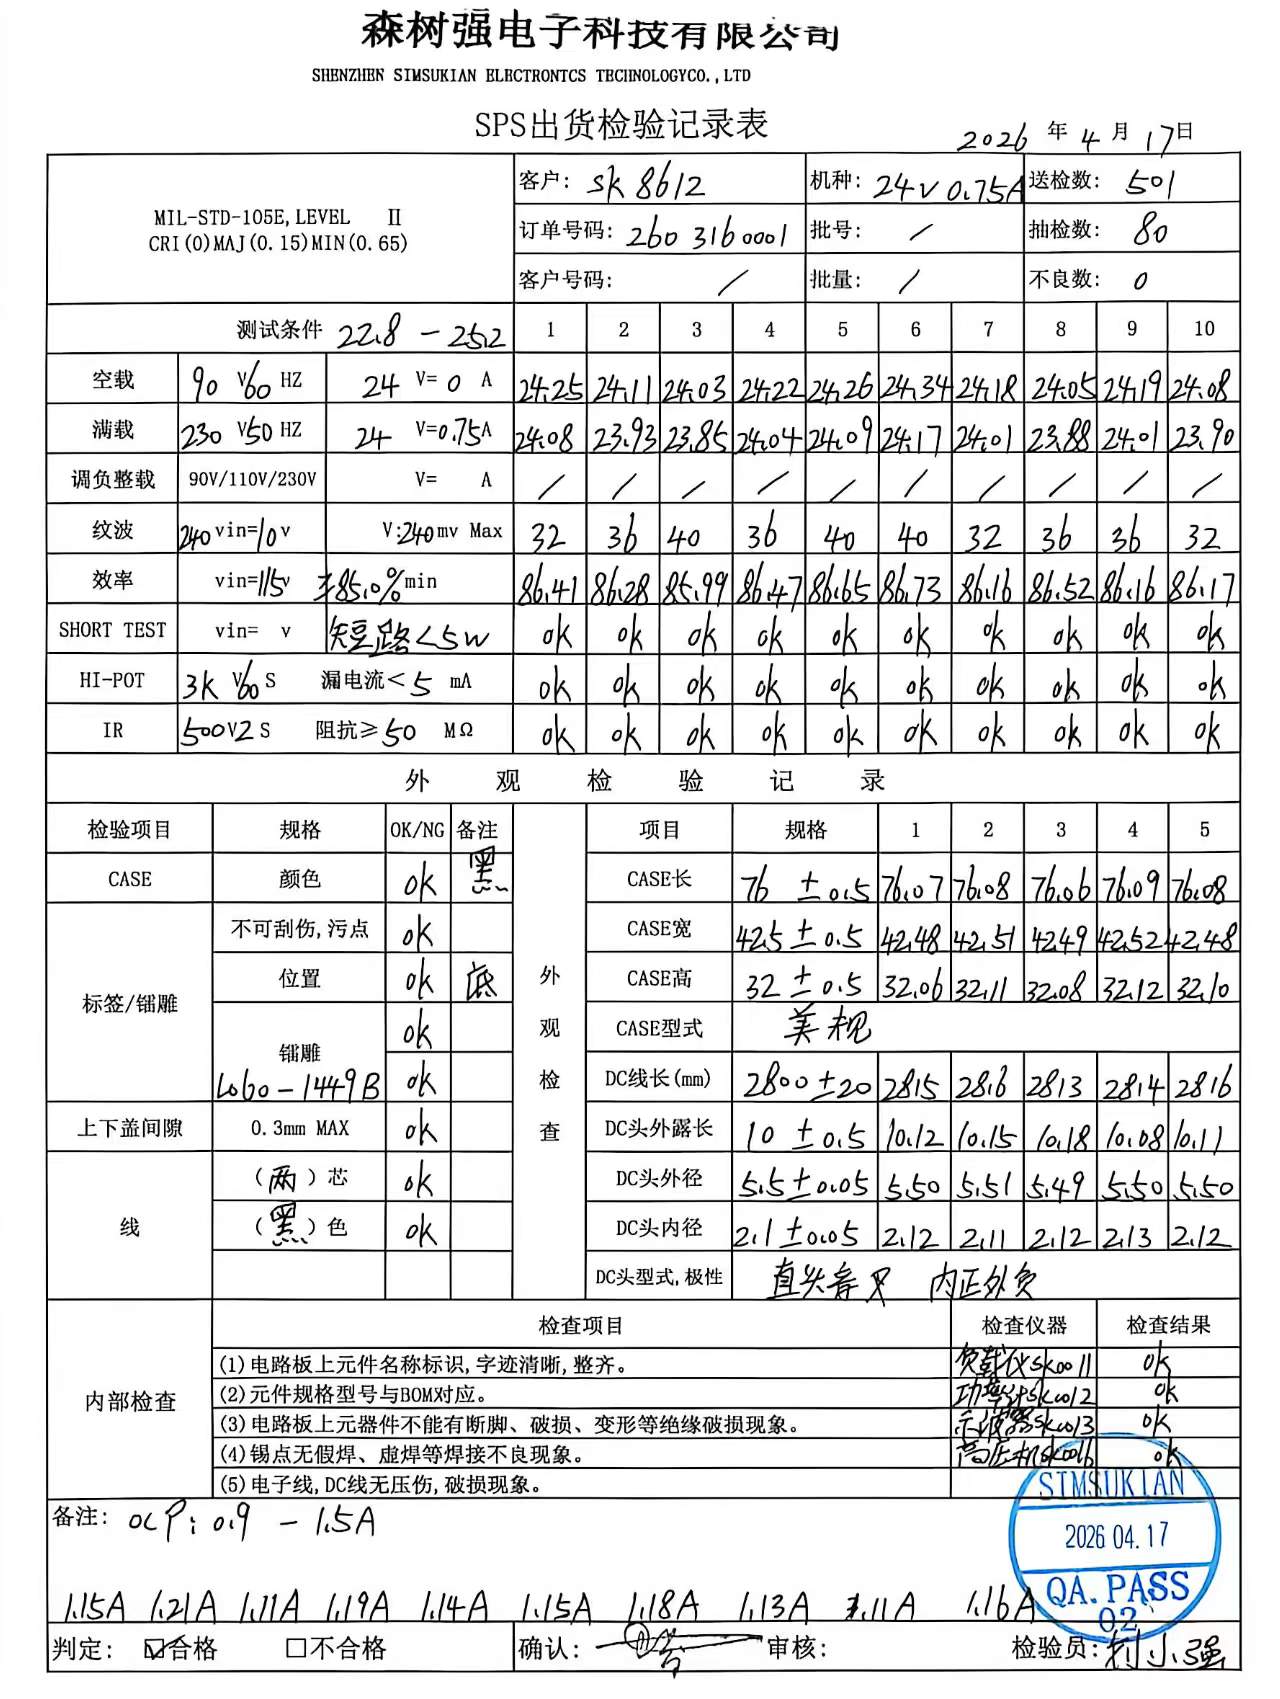 森树强电子科技有限公司
SHENZHEN SIMSUKIAN ELECTRONTCS TECHNOLOGYCO.,LTD
SPS出货检验记录表
2026 年 4 月 17日
MIL-STD-105E,LEVEL II
CRI(0)MAJ(0.15)MIN(0.65)
客户: SK 8612 机种: 24V 0.75A 送检数: 501
订单号码: 2603160001 批号: / 抽检数: 80
客户号码: / 批量: / 不良数: 0
测试条件 22.8 - 25.2 1 2 3 4 5 6 7 8 9 10
空载 90 V60 HZ 24 V= 0 A 24.25 24.11 24.03 24.22 24.26 24.34 24.18 24.05 24.19 24.08
满载 230 V50 HZ 24 V=0.75A 24.08 23.93 23.85 24.04 24.09 24.17 24.01 23.88 24.01 23.90
调负整载 90V/110V/230V V= A / / / / / / / / / /
纹波 240 vin=10v V:240mv Max 32 36 40 36 40 40 32 36 36 32
效率 vin=115v ≥85.0%min 86.41 86.28 85.99 86.47 86.65 86.73 86.16 86.52 86.16 86.17
SHORT TEST vin= v 短路<5W ok ok ok ok ok ok ok ok ok ok
HI-POT 3K V60 S 漏电流<5 mA ok ok ok ok ok ok ok ok ok ok
IR 500V2 S 阻抗≥50 MΩ ok ok ok ok ok ok ok ok ok ok
外观检验记录
检验项目 规格 OK/NG 备注 外观检查 项目 规格 1 2 3 4 5
CASE 颜色 ok 黑 CASE长 76 ±0.5 76.07 76.08 76.06 76.09 76.08
标签/镭雕 不可刮伤,污点 ok CASE宽 42.5 ±0.5 42.48 42.51 42.49 42.52 42.48
位置 ok 底 CASE高 32 ±0.5 32.06 32.11 32.08 32.12 32.10
镭雕 ok CASE型式 美规
L060-1449B ok DC线长(mm) 2800±20 2815 2816 2813 2814 2816
上下盖间隙 0.3mm MAX ok DC头外露长 10 ±0.5 10.12 10.15 10.18 10.08 10.11
线 (两)芯 ok DC头外径 5.5±0.05 5.50 5.51 5.49 5.50 5.50
(黑)色 ok DC头内径 2.1±0.05 2.12 2.11 2.12 2.13 2.12
DC头型式,极性 直头音叉 内正外负
内部检查 检查项目 检查仪器 检查结果
(1)电路板上元件名称标识,字迹清晰,整齐。 负载仪SK0011 ok
(2)元件规格型号与BOM对应。 功率计SK0012 ok
(3)电路板上元器件不能有断脚、破损、变形等绝缘破损现象。 示波器SK0013 ok
(4)锡点无假焊、虚焊等焊接不良现象。 高压机SK0016 ok
(5)电子线,DC线无压伤,破损现象。
SIMSUKIAN
2026 04.17
QA.PASS
02
备注: OCP: 0.9 - 1.5A
1.15A 1.21A 1.11A 1.19A 1.14A 1.15A 1.18A 1.13A 1.11A 1.16A
判定: ☑合格 □不合格 确认: 审核: 检验员: 刘小强